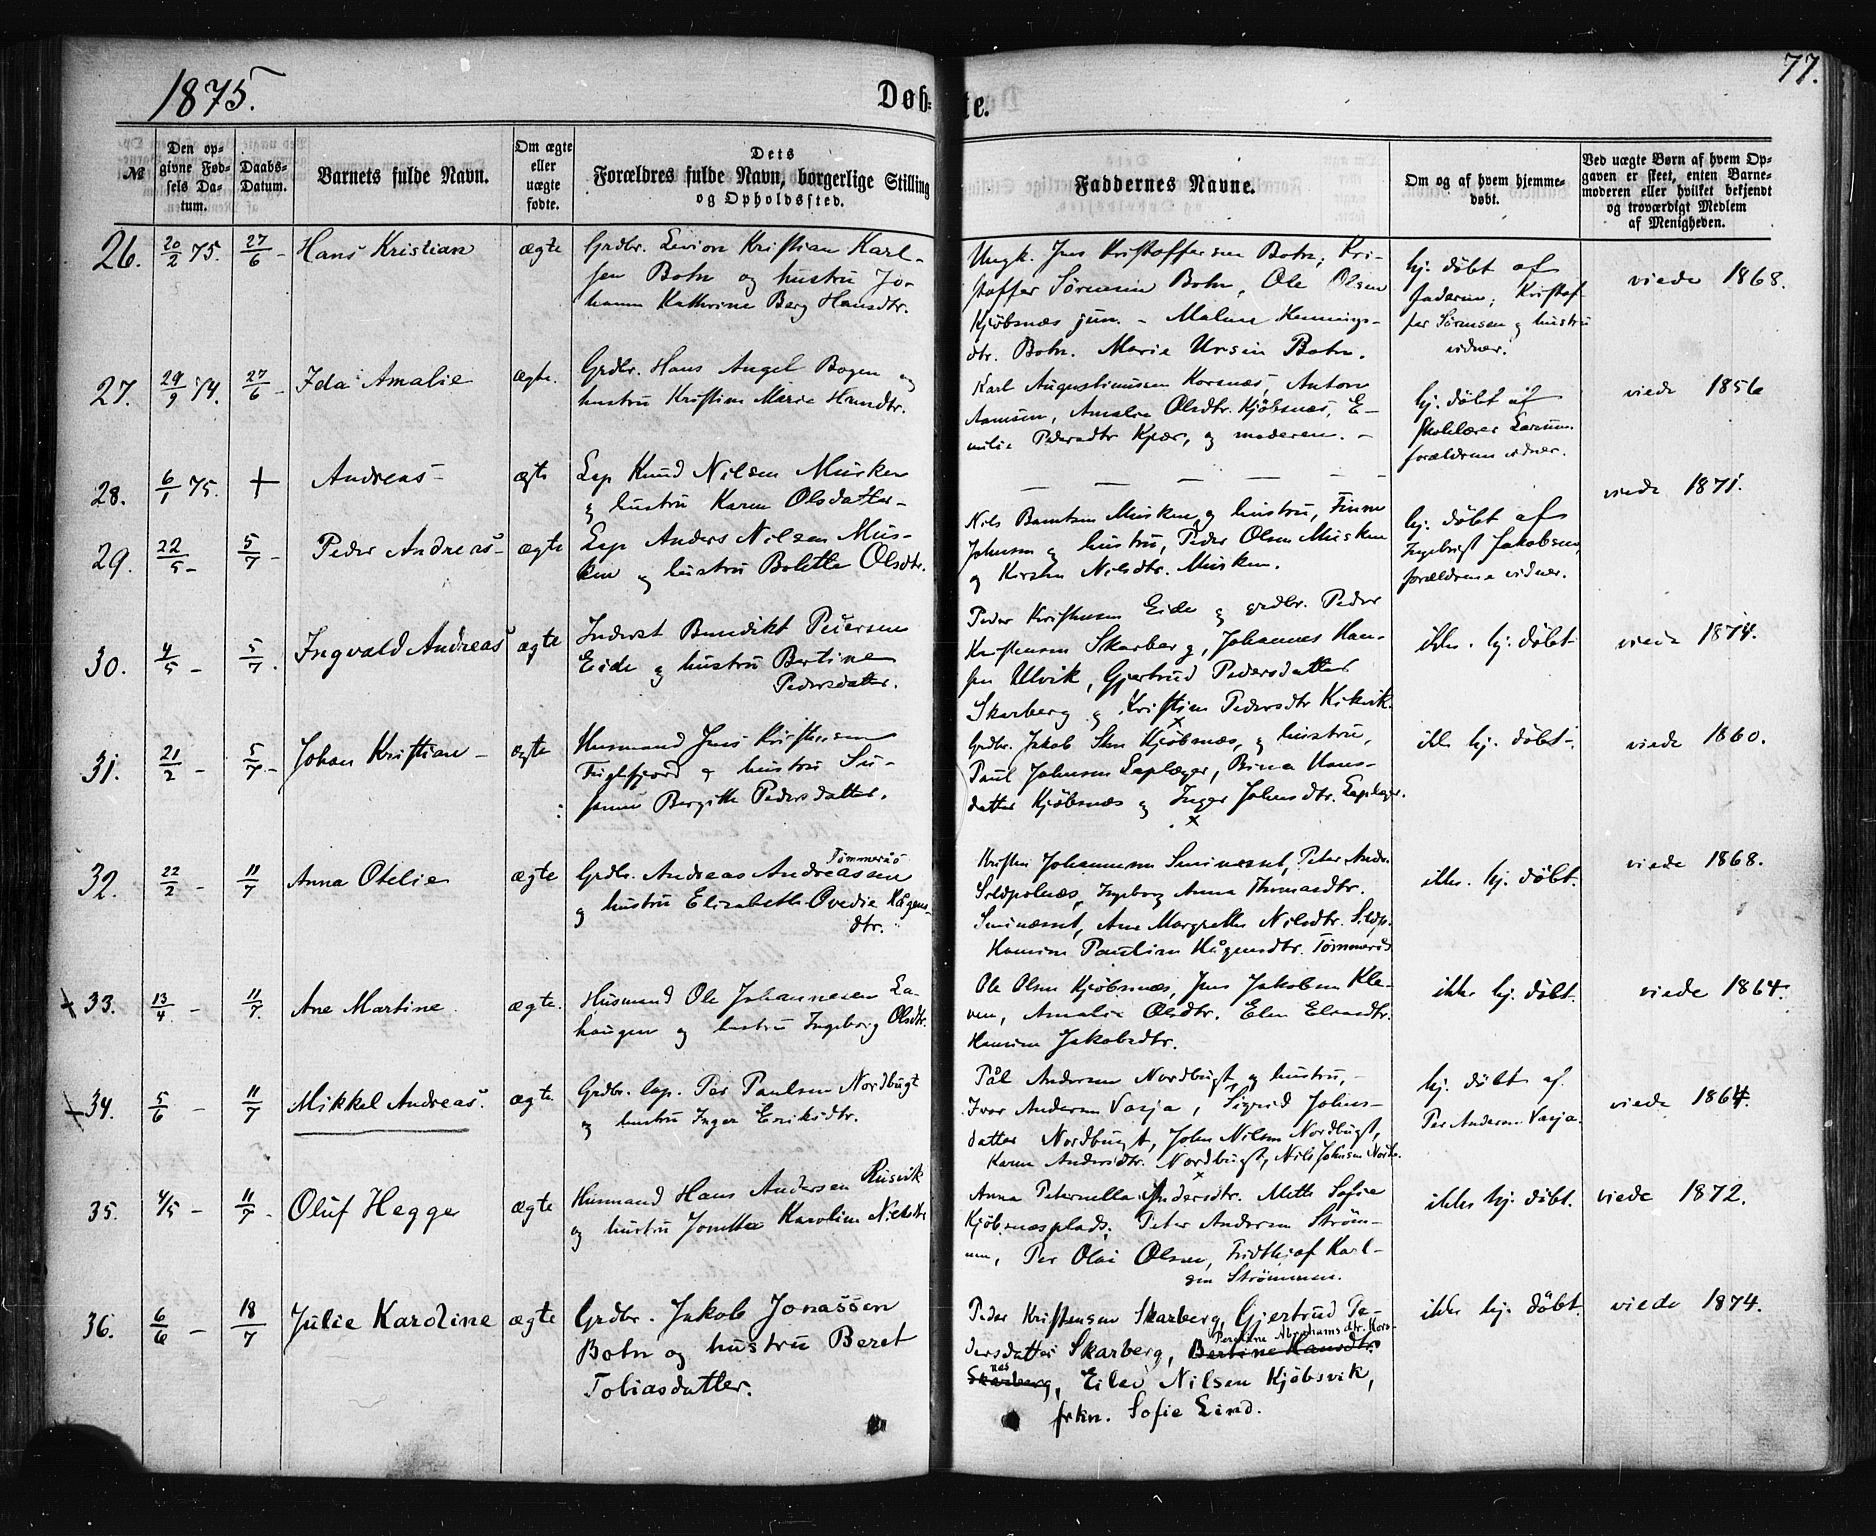 1875.
Døb-
te.
77.
№
Den op-
givne Fød-
sels Da-
tum.
Daabs-
Datum.
Barnets fulde Navn.
Om ægte
eller
uægte
fødte.
Dets
Forældres fulde Navn, borgerlige Stilling
og Opholdssted.
Faddernes Navne.
Om og af hvem hjemme-
døbt.
Ved uægte Børn af hvem Op-
gaven er skeet, enten Barne-
moderen eller hvilket bekjendt
og troværdigt Medlem
af Menigheden.
26. 20/2 75. 27/6 - Hans Kristian ægte
Grdbr. Kristian Karl-
sen Botn og hustru Jo-
hanna Kathrine Berg Hansdtr.
Ungk. Jens Kristoffersen Botn, Kri-
stoffer Sørensen Botn, Ole Olsen
Kjøbsnæs jun. - Malene Hennings-
dtr. Botn. Marie Ursin Botn.
hj. døbt af
faderen; Kristof-
fer Sørensen og hustru
vidner.
viede 1868.
27. 29/9 74. 27/6 - Ida Amalie ægte.
Grdbr. Hans Angel Bogen og
hustru Kristine Marie Hansdtr.
Karl Augustinussen Korsnæs, Anton
Amalie Olsdtr. Kjøbsnæs, E-
milie Pedersdtr Kjær, og moderen. -
hj. døbt af
skolelærer
forældrene vidner.
viede 1856
28. 6/1 75. + Andreas - ægte
Lap Knud Nilsen Musken
og hustru Karen Olsdatter -
viede 1871.
29. 22/5 - 5/7 - Peder Andreas - ægte
Lap Anders Nilsen Mus-
ken og hustru Bolette Olsdtr.
Nils Musken og hustru, Finne
Johnsen og hustru, Peder Olsen Musken
og Kirsten Nilsdtr. Musken.
hj. døbt af
Ingebrigt Jakobsen,
forældrene vidner.
30. 4/5 - 5/7 - Ingvald Andreas ægte
Inderst Benedikt Petersen
Eide og hustru Bertine
Pedersdatter.
Peder Kristensen Eide og grdbr. Peder
Kristensen Skarberg, Johannes Han-
sen Ulvik, Gjertrud Pedersdatter
Skarberg og Kristine Pedersdtr
ikke. hj. døbt
viede 1874.
31. 21/2 - 5/7 - Johan Kristian - ægte
Husmand Jens Kristensen
Fuglfjord og hustru Su-
sanne Bergitte Pedersdatter.
Grdbr. Jakob Kjøbsnæs, og hustru,
Paul Johnsen Laplæger, Bina Hans-
datter Kjøbsnæs og Inger Johnsdtr. Laplæger.
ikke hj. døbt -.
viede 1860.
32. 22/2 - 11/7 Anna Otelie ægte
Tømmerås
Grdbr. Andreas Andreassen
og hustru Elizabeth Ovedie Hågens-
dtr.
Kristen Johannesen Sminæsset, Peter
Sildpolnæs, Ingeborg Anna Thomasdtr.
Sminæsset, Ane Margrethe Nilsdtr. Sildp.
Hansine Pauline Hågensdtr. Tømmerås
ikke. hj. døbt.
viede 1868.
+ 33. 13/4 - 11/7. Ane Martine ægte.
Husmand Ole Johannesen La-
haugen og hustru Ingeborg Olsdtr.
Ole Olsen Kjøbsnæs, Jens Jakobsen Kle-
ven, Amalie Olsdtr. Elen
Hansine Jakobsdtr.
ikke hj. døbt.
viede 1864.
+ 34. 5/6 - 11/7 Mikkel Andreas. ægte.
Grdbr. lap. Per Paulsen Nordbugt
og hustru Inger Eriksdtr.
Pål Andersen Nordbugt og hustru, -
Ivar Andersen Varja, Sigrid Johns-
datter Nordbugt, John Nilsen Nordbugt,
Karen Andersdtr. Nordbugt, Nils Johnsen
hj. døbt af
Per Andersen Varja.
viede 1864.
35. 4/5 - 11/7 - Oluf Hegge ægte
Husmand Hans Andersen Rusvik
og hustru Jonetta Karoline
Anna Peternella Andersdtr. Mette Sofie
Kjøbsnæsplads, Peter Andersen Strøm-
men, Per Olai Olsen, Fridthjof Karl-
sen Strømmen.
ikke hj. døbt.
viede 1872.
36. 6/6 - 18/7 Julie Karoline ægte
Grdbr. Jakob Jonassen
Botn og hustru Beret
Tobiasdatter.
Peder Kristensen Skarberg, Gjertrud Pe-
Abrahamsdtr. Kors-
dersdatter Skarberg, Bertine Hansdtr.
næs
Skarberg, Eilev Nilsen Kjøbsvik,
frkn. Sofie Lind.
ikke hj. døbt.
viede 1874.